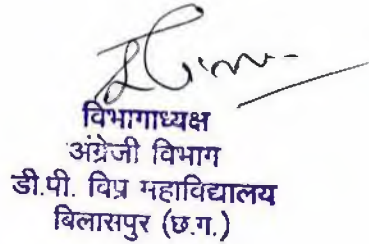 विभागाध्यक्ष
अंग्रेजी विभाग
डी.पी. विप्र महाविद्यालय
बिलासपुर (छ.ग.)